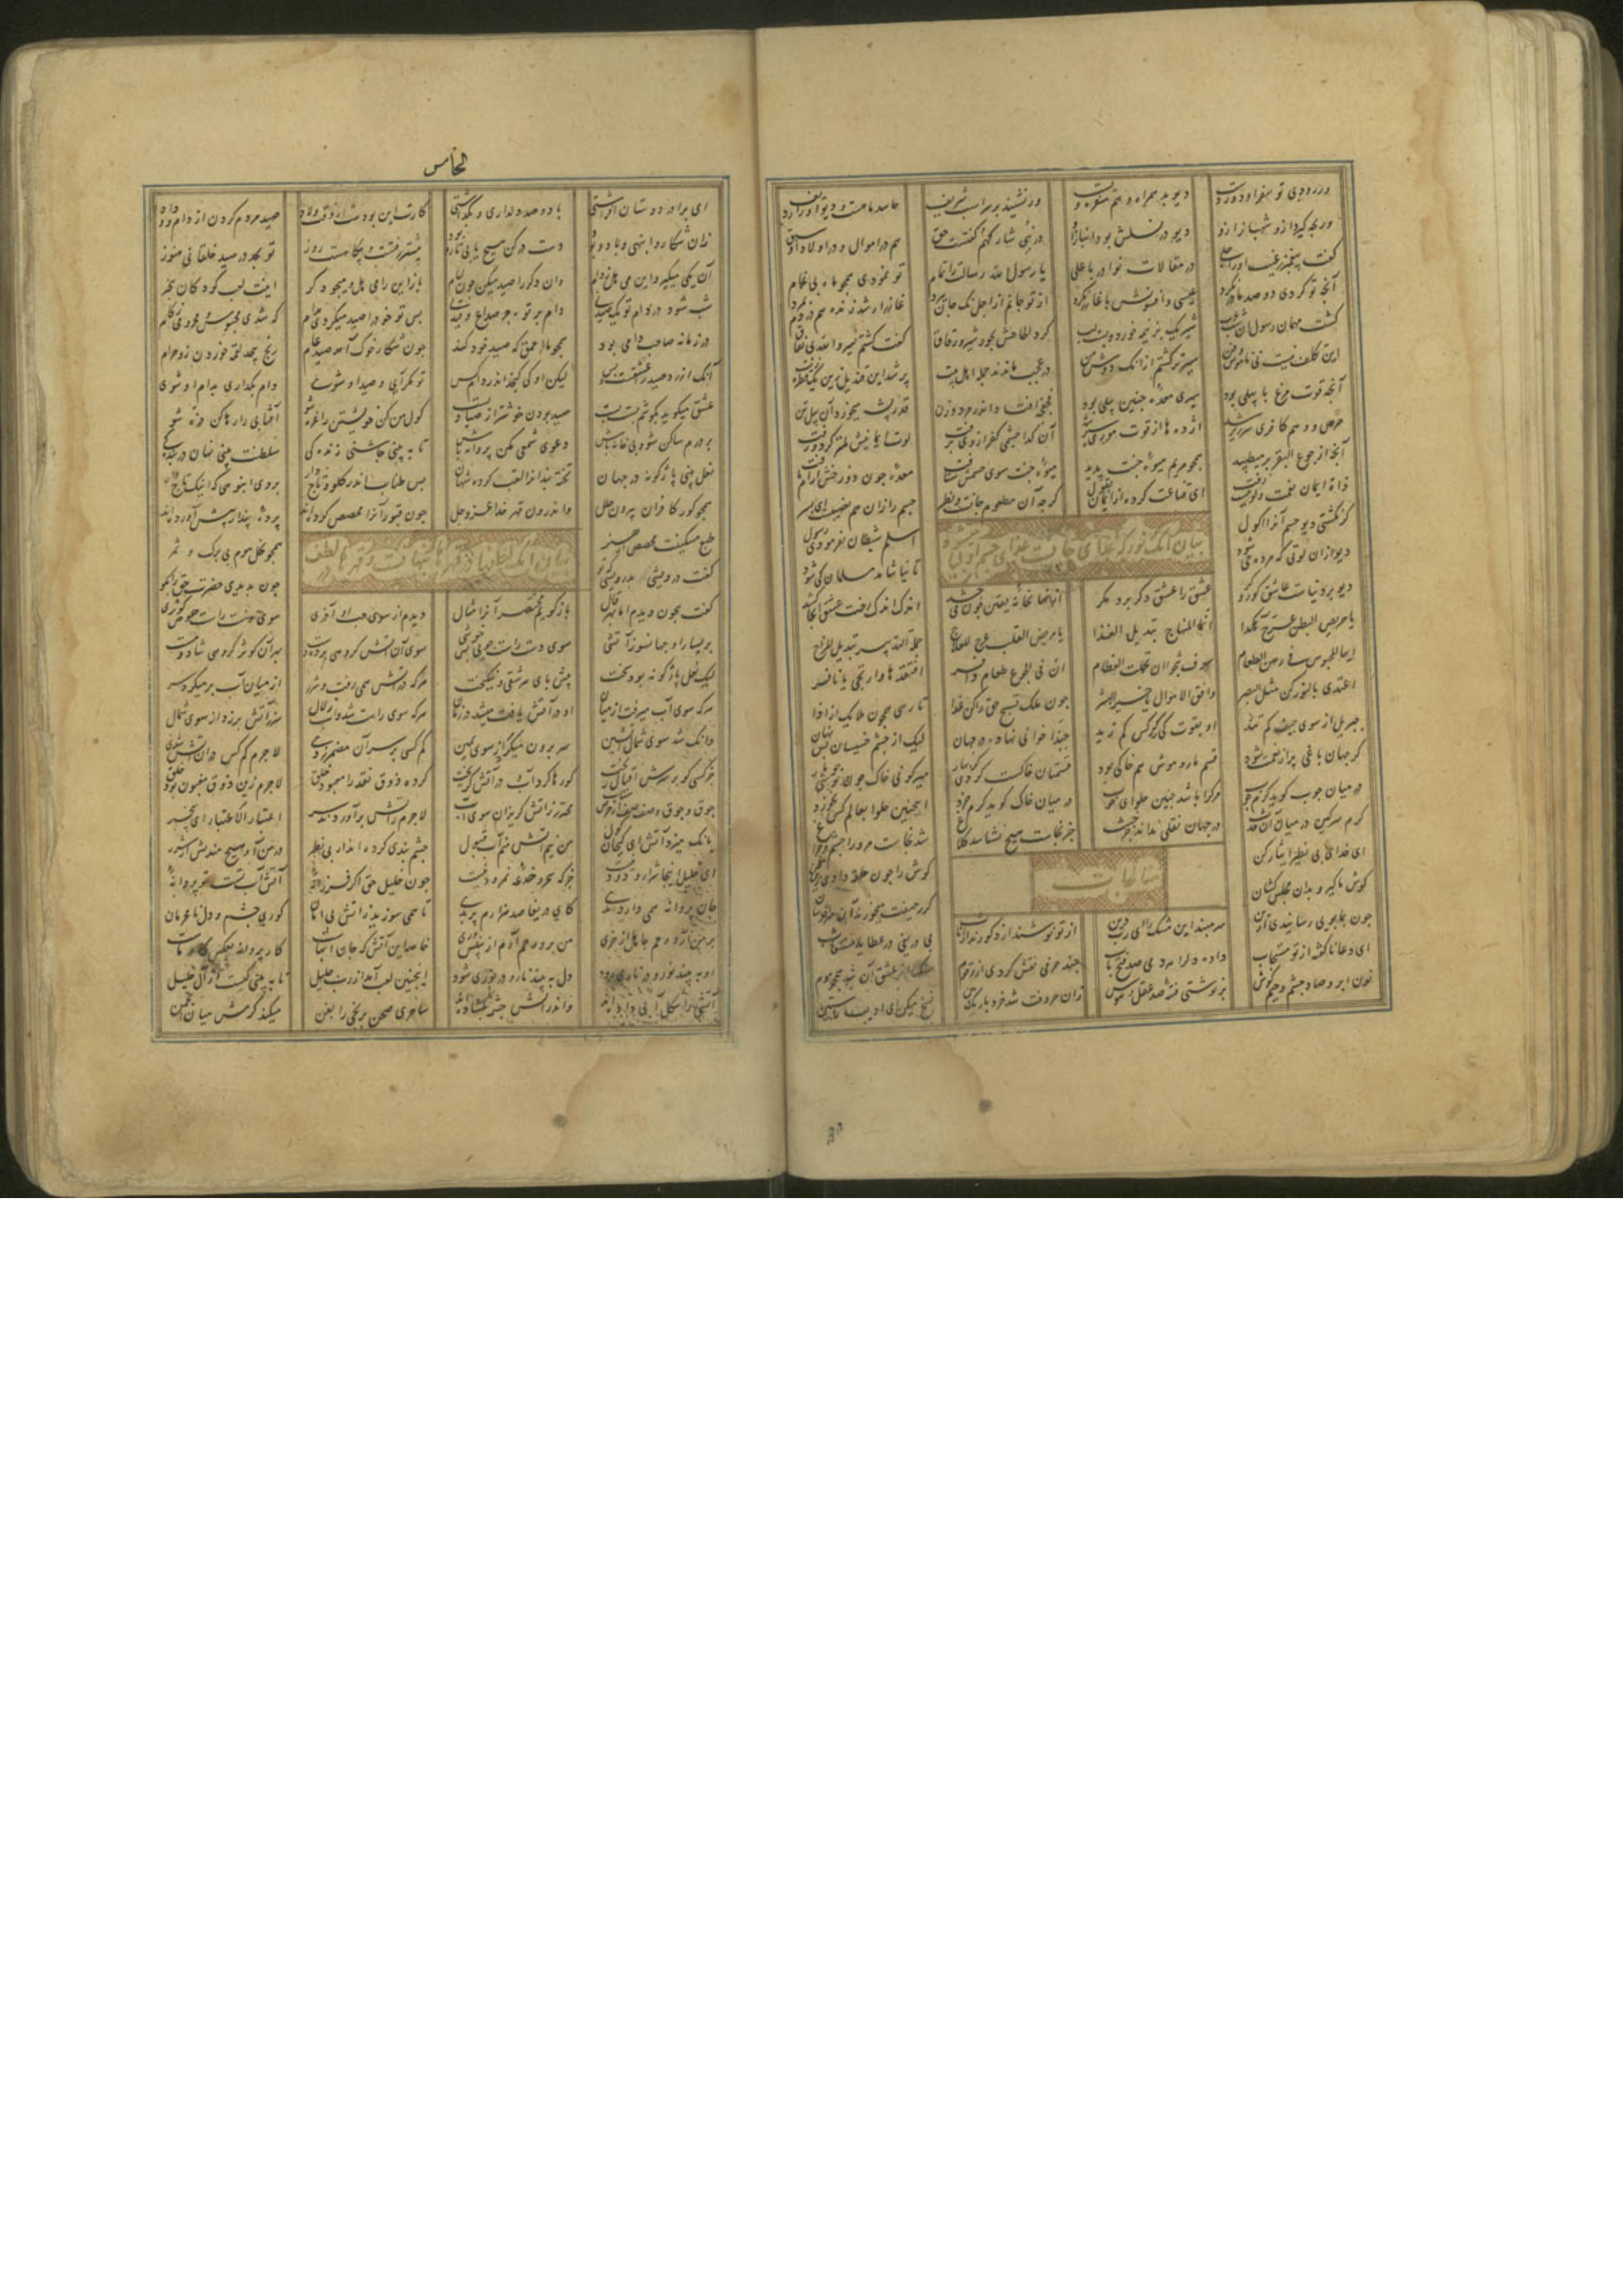 ور رود بی تو سفر او دوردست دیو بد همراه و هم سفره ویست ور نشیند بر سر اسب شریف حاسد ماهست و دیو او را ردیف
ور بچه گیرد ازو شهناز او دیو در نسلش بود انباز او در نبی شارکهم گفتست حق هم در اموال و در اولاد ای سبق
گفت پیغمبر ز غیب این را جلی در مقالات نوادر با علی یا رسول الله رسالت را تمام تو نمودی همچو ماه بی غمام
آنچه تو کردی دو صد مادر نکرد عیسی و افسونش با عازر نکرد از تو جانم از اجل نک جان ببرد عازر ار شد زنده هم در دم بمرد
گشت مهمان رسول آن شب عرب شیر یک بز نیمه خورد و بست لب کرد الحاحش بخور شیر و رقاق گفت گشتم سیر والله بی نفاق
این تکلف نیست نی ناموس و فن سیرتر گشتم از آنک دوش من در عجب ماندند جمله اهل بیت پر شد این قندیل زین یک قطره زیت
آنچه قوت مرغ بابیلی بود سیری معده چنین پیلی بود فجفجه افتاد اندر مرد و زن قدر پشه میخورد آن پیل تن
حرص و وهم کافری سرزیر شد اژدها از قوت موری سیر شد آن گدا چشمی کفر از وی برفت لوت ایمانیش لمتر کرد و زفت
آنک از جوع البقر بر میطپید همچو مریم میوه جنت بدید میوه جنت سوی چشمش شتافت معده چون دوزخش آرام یافت
ذات ایمان نعمت و لوتیست ای قناعت کرده از ایمان بقول گرچه آن مطعوم جانست و نظر جسم را زان هم نصیبست ای پسر
گر نگشتی دیو جسم آنرا اکول اسلم شیطان نفرمودی رسول
بیان آنک نور که غذای جانست غذای جسم اولیا
دیو ازان لوتی که مرده حی شود تا نیاشامد مسلمان کی شود
دیو بر دنیاست عاشق کور و کر عشق را عشق دگر برد مگر از نهانخانه یقین چون می چشد اندک اندک رخت عشق آنجا کشد
یا حریص البطن عرج هکذا انما المنهاج تبدیل الغذا یا مریض القلب عرج للعلاج جملة التدبیر تبدیل المزاج
ایها المحبوس فی رهن الطعام سوف تنجو ان تحملت الفطام ان فی الجوع طعام وافر افتقدها وارتجی یا نافر
اغتذی بالنور کن مثل البصر وافق الاملاک یا خیر البشر چون ملک تسبیح حق را کن غذا تا رهی همچون ملایک از اذا
جبریل ار سوی جیفه کم تند او بقوت کی ز کرکس کم زند حبذا خوانی نهاده در جهان لیک از چشم خسیسان بس نهان
گر جهان باغی پر از نعمت شود قسم مار و موش هم خاکی بود قسمشان خاکست گر دی گر بهار میر کونی خاک چون نوشی چو مار
در میان چوب گوید کرم چوب مر کرا باشد چنین حلوای خوب در میان خاک گوید کرم خرد اینچنین حلوا بعالم کس نخورد
کرم سرگین در میان آن حدث در جهان نقلی نداند جز خبث جز نجاست هیچ نشناسد کلاغ شد نجاست مر ورا چشم و چراغ
مناجات
ای خدای بی نظیر ایثار کن گوش را چون حلقه دادی زین سخن
گوش ما گیر و بدان مجلس کشان کز رحیقت میخورند آن سرخوشان
چون بما بویی رسانیدی ازین سر مبند این مشک را ای رب دین از تو نوشند ار ذکورند ار اناث بی دریغی در عطا یا مستغاث
ای دعا ناگفته از تو مستجاب داده دل را هر دمی صد فتح باب چند حرفی نقش کردی از رقوم سنگها از عشق آن شد همچو موم
نون ابرو صاد چشم و جیم گوش بر نوشتی فتنه صد عقل و هوش زان حروفت شد خرد باریک ریس نسخ میکن ای ادیب
الخامس
ای برادر دوستان افراشتی با دو صد دلداری و بگذاشتی کارت این بودست از وقت ولاد صید مردم کردن از دام وداد
زان شکار و انبهی و باد و بود دست در کن هیچ یابی تار و پود بیشتر رفتست و بیگاهست روز تو بجد در صید خلقانی هنوز
آن یکی میگیر و این می هل ز دام وان دگر را صید میکن چون لئام باز این را می هل و میجو دگر اینت لعب کودکان بی خبر
شب شود در دام تو یک صید نی دام بر تو جز صداع و قید نی پس تو خود را صید میکردی بدام که شدی محبوس و محرومی ز کام
در زمانه صاحب دامی بود همچو ما احمق که صید خود کند چون شکار خوک آمد صید عام رنج بیحد لقمه خوردن زو حرام
آنک ارزد صید را عشقست و بس لیکن او کی گنجد اندر دام کس تو مگر آیی و صید او شوی دام بگذاری بدام او شوی
عشق میگوید بگوشم پست پست صید بودن خوشتر از صیادیست گول من کن خویشتن را غره شو آفتابی را رها کن ذره شو
بر درم ساکن شو و بی خانه باش دعوی شمعی مکن پروانه باش تا ببینی چاشنی زندگی سلطنت بینی نهان در بندگی
نعل بینی باژگونه در جهان تخته بندانرا لقب کرده شهان بس طناب اندر گلو و تاج دار بر وی انبوهی که اینک تاج دار
همچو گور کافران بیرون حلل واندرون قهر خدا عز و جل چون قبور آنرا مجصص کرده اند پرده پندار پیش آورده اند
طبع مسکینت مجصص از هنر همچو نخل موم بی برگ و ثمر
بیان آنک لطفها در قهرها پنهانست و قهرها در لطف
گفت درویشی بدرویشی که تو چون بدیدی حضرت حق را بگو
گفت بیچون دیدم اما بهر قال بازگویم مختصر آنرا مثال دیدم از سوی چپ او آذری سوی دست راست حوض کوثری
بر یسار او جهانسوز آتشی سوی دست راست جوی خوشی سوی آن آتش گروهی برده دست بهر آن کوثر گروهی شاد و مست
لیک لعل باژگونه بود سخت پیش پای هر شقی و نیکبخت هر که در آتش همی رفت و شرر از میان آب بر میکرد سر
هر که سوی آب میرفت از میان او در آتش یافت میشد در زمان هر که سوی راست شد و آب زلال سر ز آتش بر زد از سوی شمال
وانک شد سوی شمال آتشین سر برون میکرد از سوی یمین کم کسی بر سر آن مضمر زدی لاجرم کم کس در آن آتش شدی
جز کسی کو بر سرش اقبال ریخت کو رها کرد آب و در آتش گریخت کرده ذوق نقد را معبود خلق لاجرم زین ذوق مغبون بود خلق
جوق و جوق و صف صف از حرص و شتاب محترز ز آتش گریزان سوی آب لاجرم ز آتش برآوردند سر اعتبار الاعتبار ای بیخبر
بانگ میزد آتش ای گیجان گول من نیم آتش منم آب قبول چشم بندی کرده اند ای بی نظر در من آ و هیچ مندیش از شرر
ای خلیل اینجا شرار و دود نیست جز که سحر و خدعه نمرود نیست چون خلیل حق اگر فرزانه آتش آب تست و تو پروانه
جان پروانه همی دارد ندی کای دریغا صد هزارم پر بدی تا همی سوزید ز آتش بی امان کوری چشم و دل نامحرمان
بر من آرد رحم جاهل از خری من برو رحم آرم از بینش وری خاصه این آتش که جان آبهاست کار پروانه بعکس کار ماست
او ببیند نور و در ناری رود دل ببیند نار و در نوری شود اینچنین لعب آمد از رب جلیل تا ببینی کیست از آل خلیل
آتشی را شکل آبی داده اند واندر آتش چشمه بگشاده اند ساحری صحن برنجی را بفن میکند کرمش میان انجمن